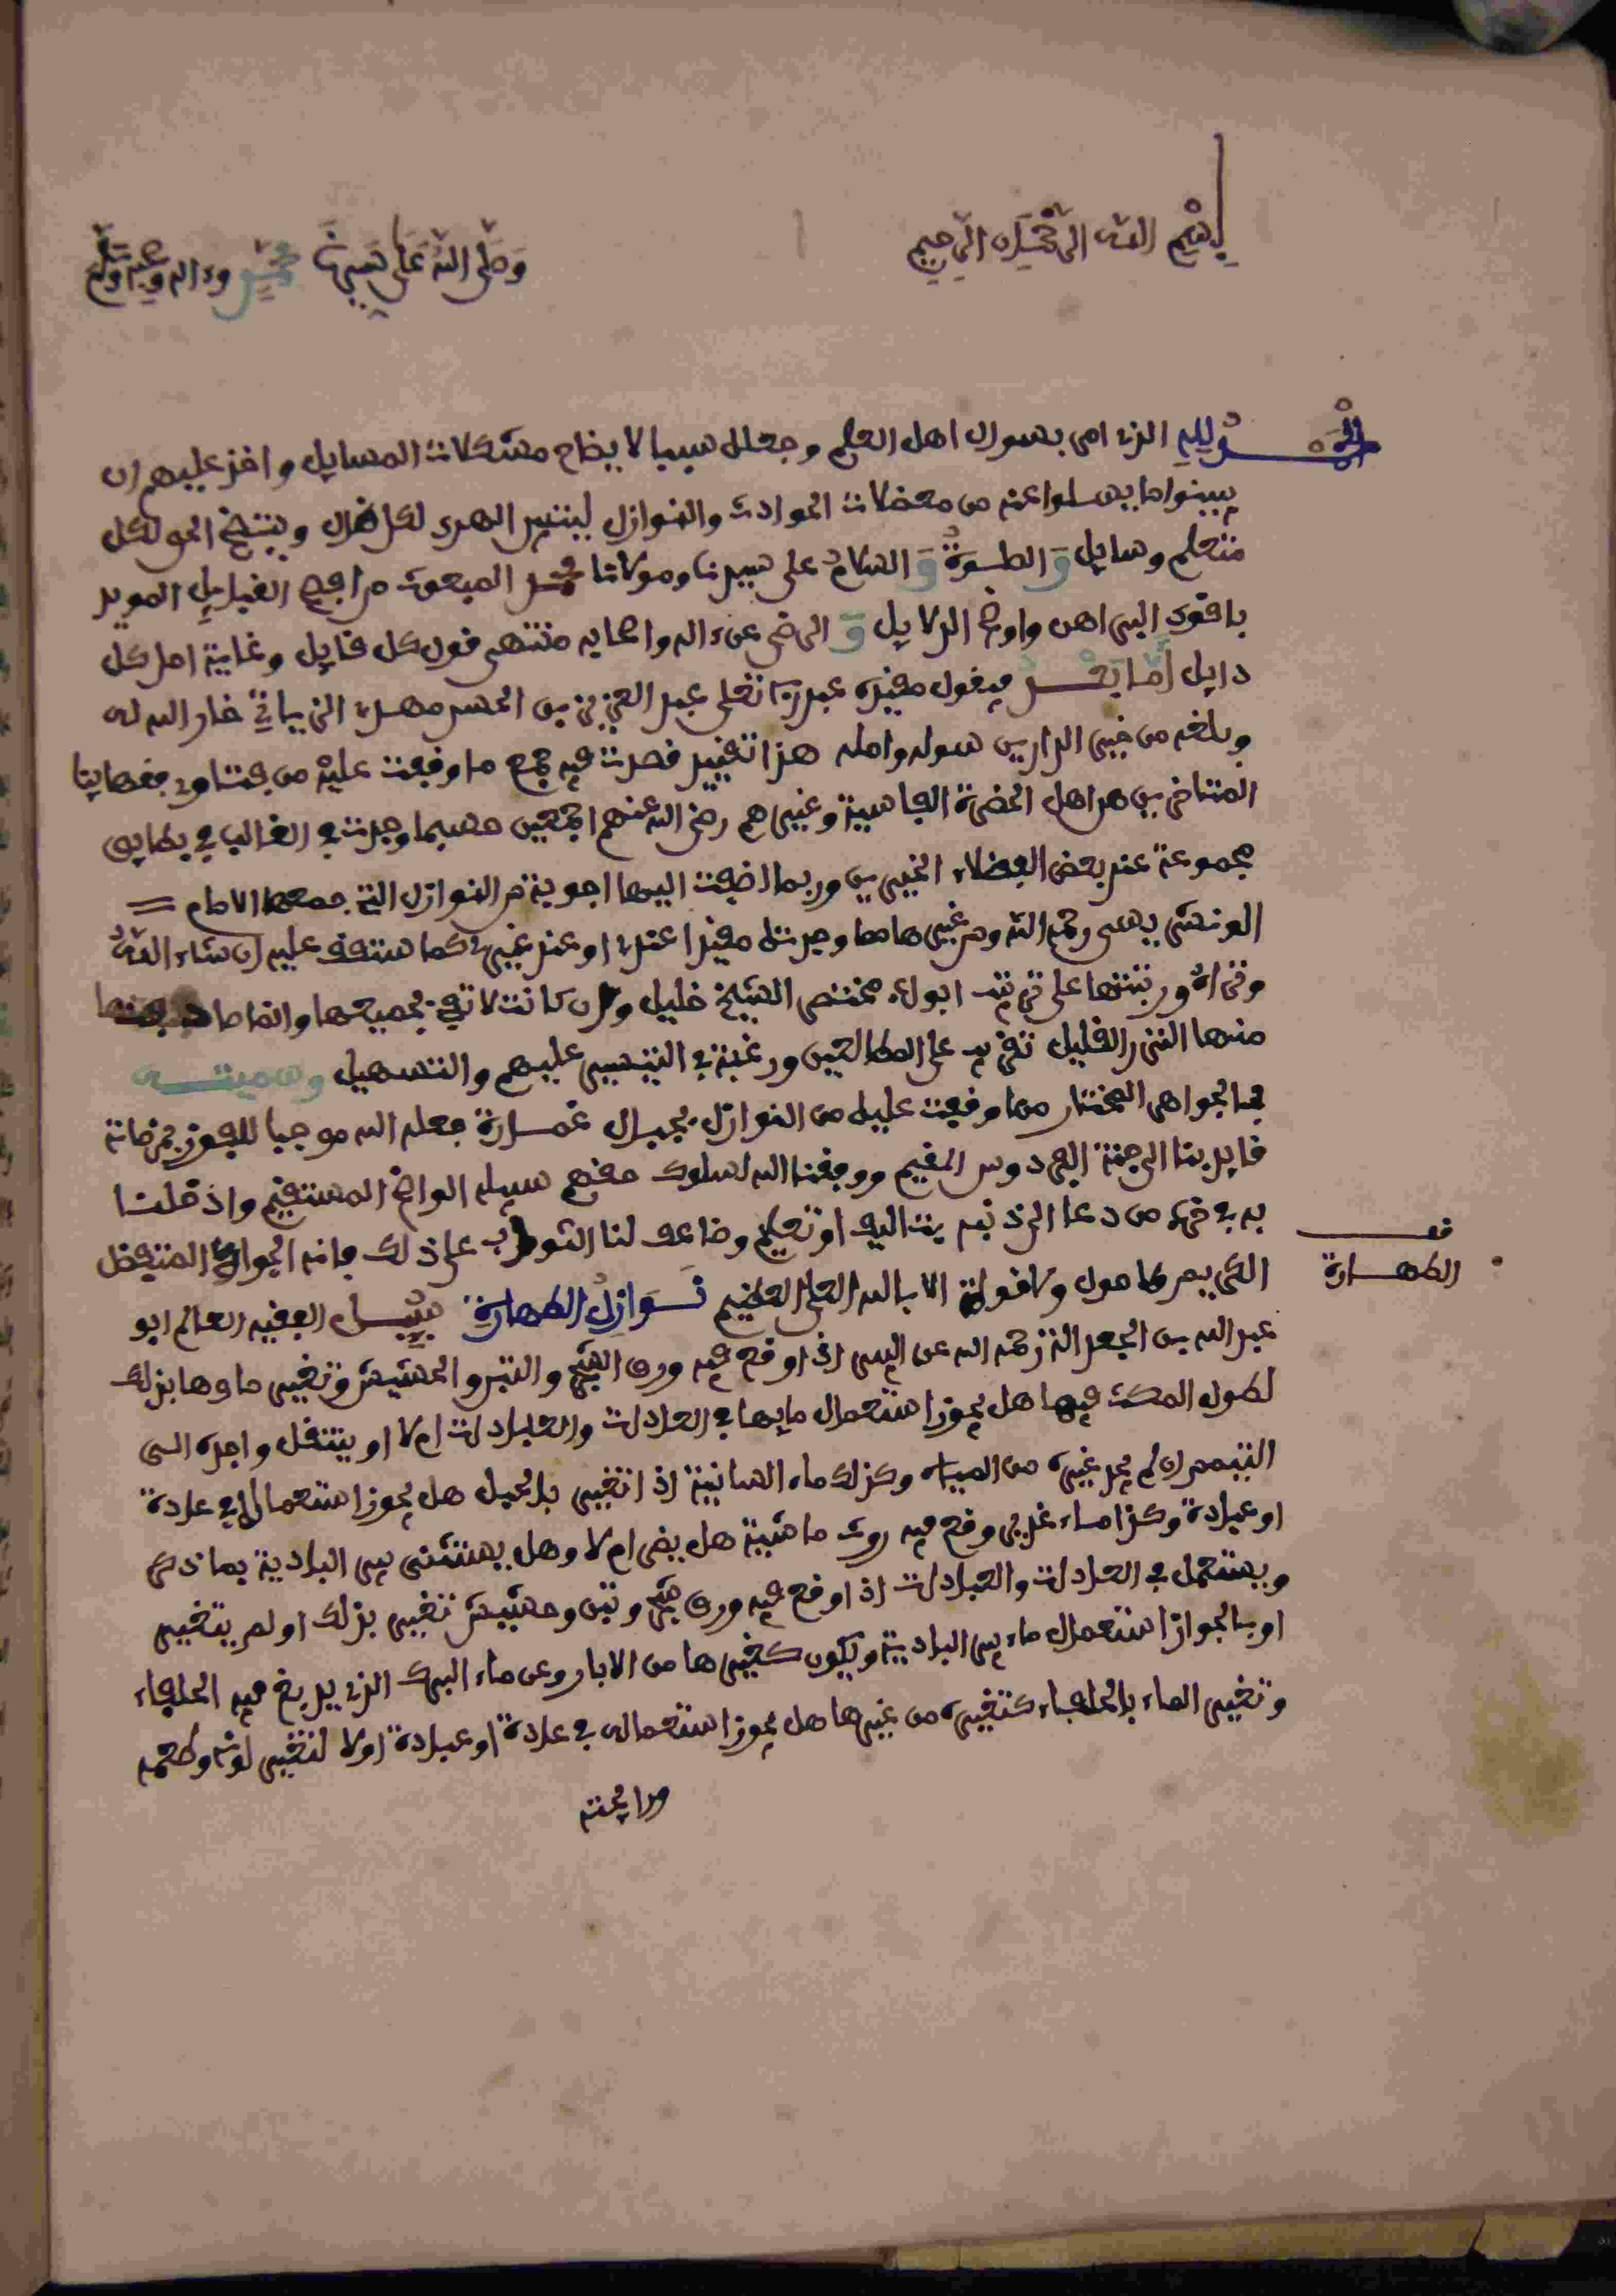 بسم الله الرحمان الرحيم
وصلى الله على سيدنا محمد وءاله وصحبه وسلم
الحمد لله الذي امر بسوال اهل العلم وجعله سببا لايضاح مشكلات المسايل واخذ عليهم ان
يبينوا ما يسلوا عنه من معضلات الحوادث والنوازل ليتبين الهدى لكل ضال ويتضح الحق لكل
متعلم وسايل والصلوة والسلام على سيدنا ومولانا محمد المبعوث من افصح القبايل المويد
باقوى البراهن واوضح الدلايل والرضى عن ءاله واصحابه منتهى قول كل قايل وغاية امل كل
دايل أما بعد فيقول مقيده عبد ربه تعلى عبد العزيز بن الحسن مهدي الزياتي خار الله له
وبلغه من خير الدارين سوله وامله هذا تقييد قصدت فيه جمع ما وقفت عليه من فتاوي فقهاينا
المتاخرين من اهل الحضرة الفاسية وغيرهم رضي الله عنهم اجمعين حسبما وجدت في الغالب في بطايق
مجموعة عند بعض الفضلاء الخيرين وربما اضفت اليها اجوبة من النوازل التي جمعها الامام
الونشريسي رحمه الله ومن غيرها مما وجدته مقيدا عنده او عند غيره كما ستقف عليه ان شاء الله
وتراه ورتبتها على ترتيب ابواب مختصر الشيخ خليل وان كانت لا تفي بجميعها وانما
منها النزر القليل تقريبا على المطالعين ورغبة في التيسير عليهم والتسهيل وسميته
بالجواهر المختارة مما وقفت عليه من النوازل بجبال غمارة جعله الله موجبا للفوز بمرضاته
قايدنا الى جنة الفردوس المقيم ووفقنا الله لسلوك مهيع سبيله الواضح المستقيم واذ قلنا
به بفضله من دعا الى ذنبه بتاليف او تعليم وضاعف لنا الثواب على ذلك فانه الجواد المتفضل
الكريم لا حول ولا قوة الا بالله العلي العظيم نوازل الطهارة سيل الفقيه العالم ابو
عبد الله بن الجعدالة رحمه الله عن البير اذا وقع فيه ورق الشجر والتبن والحشيش وتغير ماوها بذلك
لطول المكث فيها هل يجوز استعمال مايها في العادات والعبادات ام لا او ينتقل واجده الى
التيمم ان لم يجد غيره من المياه وكذلك ماء السانية اذا تغير بالحبل هل يجوز استعماله في عادة
او عبادة وكذا ماء غدير وقع فيه روث ماشية هل يضر ام لا وهل يستثنى بير البادية بما ذكر
ويستعمل في العادات والعبادات اذا وقع فيه ورق شجر وتبن وحشيش تغير بذلك او لم يتغير
او بالجواز استعمال ماء بير البادية ويكون كغيرها من الابار وعن ماء البرك الذي يدبغ فيه الحلفاء
وتغير الماء بالحلفاء كتغيره من غيرها هل يجوز استعماله في عادة او عبادة او لا لتغير لونه وطعمه
ورايحته
فصل
الطهارة